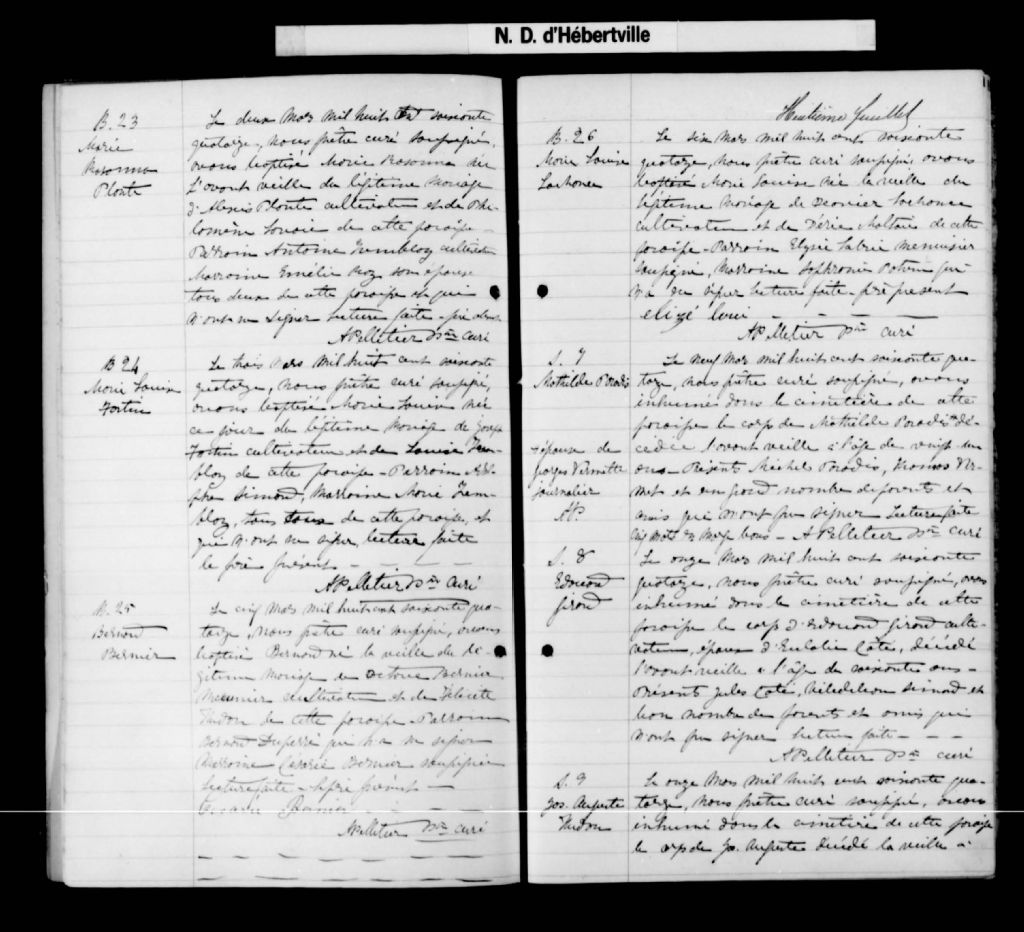 N. D. d'Hébertville
B. 23
Marie
Rosanna
Plonte
Le deux Mars mil huit cent soixante
quatorze, nous prêtre curé soussigné,
avons baptisé Marie Rosanna née
l'avant veille du légitime mariage
d'Alexis Plonte cultivateur et de Phi-
lomène de cette paroisse -
Parrain Antoine Tremblay cultivateur
Marraine Emélie Roy son épouse
tous deux de cette paroisse et qui
n'ont su signer lecture faite -
APelletier Ptre curé
B 24
Marie Louise
Fortin
Le trois Mars mil huit cent soixante
quatorze, nous prêtre curé soussigné,
avons baptisé Marie Louise née
ce jour du légitime mariage de Joseph
Fortin cultivateur et de Louise Trem-
blay de cette paroisse - Parrain
Simard, Marraine Marie Trem-
blay, tous tous de cette paroisse, et
qui n'ont su signer, lecture faite
le père présent - - -
APelletier Ptre curé
B. 25
Bernard
Bernier
Le cinq Mars mil huit cent soixante qua-
torze, nous prêtre curé soussigné, avons
baptisé Bernard né la veille du lé-
gitime mariage de Octave Bernier
cultivateur et de Félicité
Hudon de cette paroisse - Parrain
Bernard qui n'a su signer
Marraine Césarie Bernier soussignée
lecture faite - le père présent -
Césarie Bernier
APelletier Ptre curé
Huitième feuillet
B. 26
Marie Louise
Lachance
Le six Mars mil huit cent soixante
quatorze, nous prêtre curé soussigné, avons
baptisé Marie Louise née la veille du
légitime mariage de Lachance
cultivateur et de Maltais de cette
paroisse - Parrain Elysé menuisier
soussigné, Marraine Sophronie Potvin qui
n'a su signer lecture faite - père présent
elizé
APelletier Ptre curé
S. 7
Mathilde Paradis
épouse de
Georges
journalier
AP.
Le neuf Mars mil huit cent soixante qua-
torze, nous prêtre curé soussigné, avons
inhumé dans le cimetière de cette
paroisse le corps de Mathilde Paradis dé-
cédée l'avant veille à l'âge de vingt un
ans - Présents Michel Paradis, Thomas
et un grand nombre de parents et
amis qui n'ont pu signer lecture faite
cinq mots en marge bons - APelletier Ptre curé
S. 8
Edouard
Girard
Le onze Mars mil huit cent soixante
quatorze, nous prêtre curé soussigné, avons
inhumé dans le cimetière de cette
paroisse le corps d'Edouard Girard culti-
vateur, époux d'Eulalie Coté, décédé
l'avant-veille à l'âge de soixante ans -
Présents Jules Coté, Simard et
bon nombre de parents et amis qui
n'ont pu signer lecture faite - - -
APelletier Ptre curé
S. 9
Jos. Auguste
Hudon
Le onze Mars mil huit cent soixante qua-
torze, nous prêtre curé soussigné, avons
inhumé dans le cimetière de cette paroisse
le corps de Jos. Auguste décédé la veille à